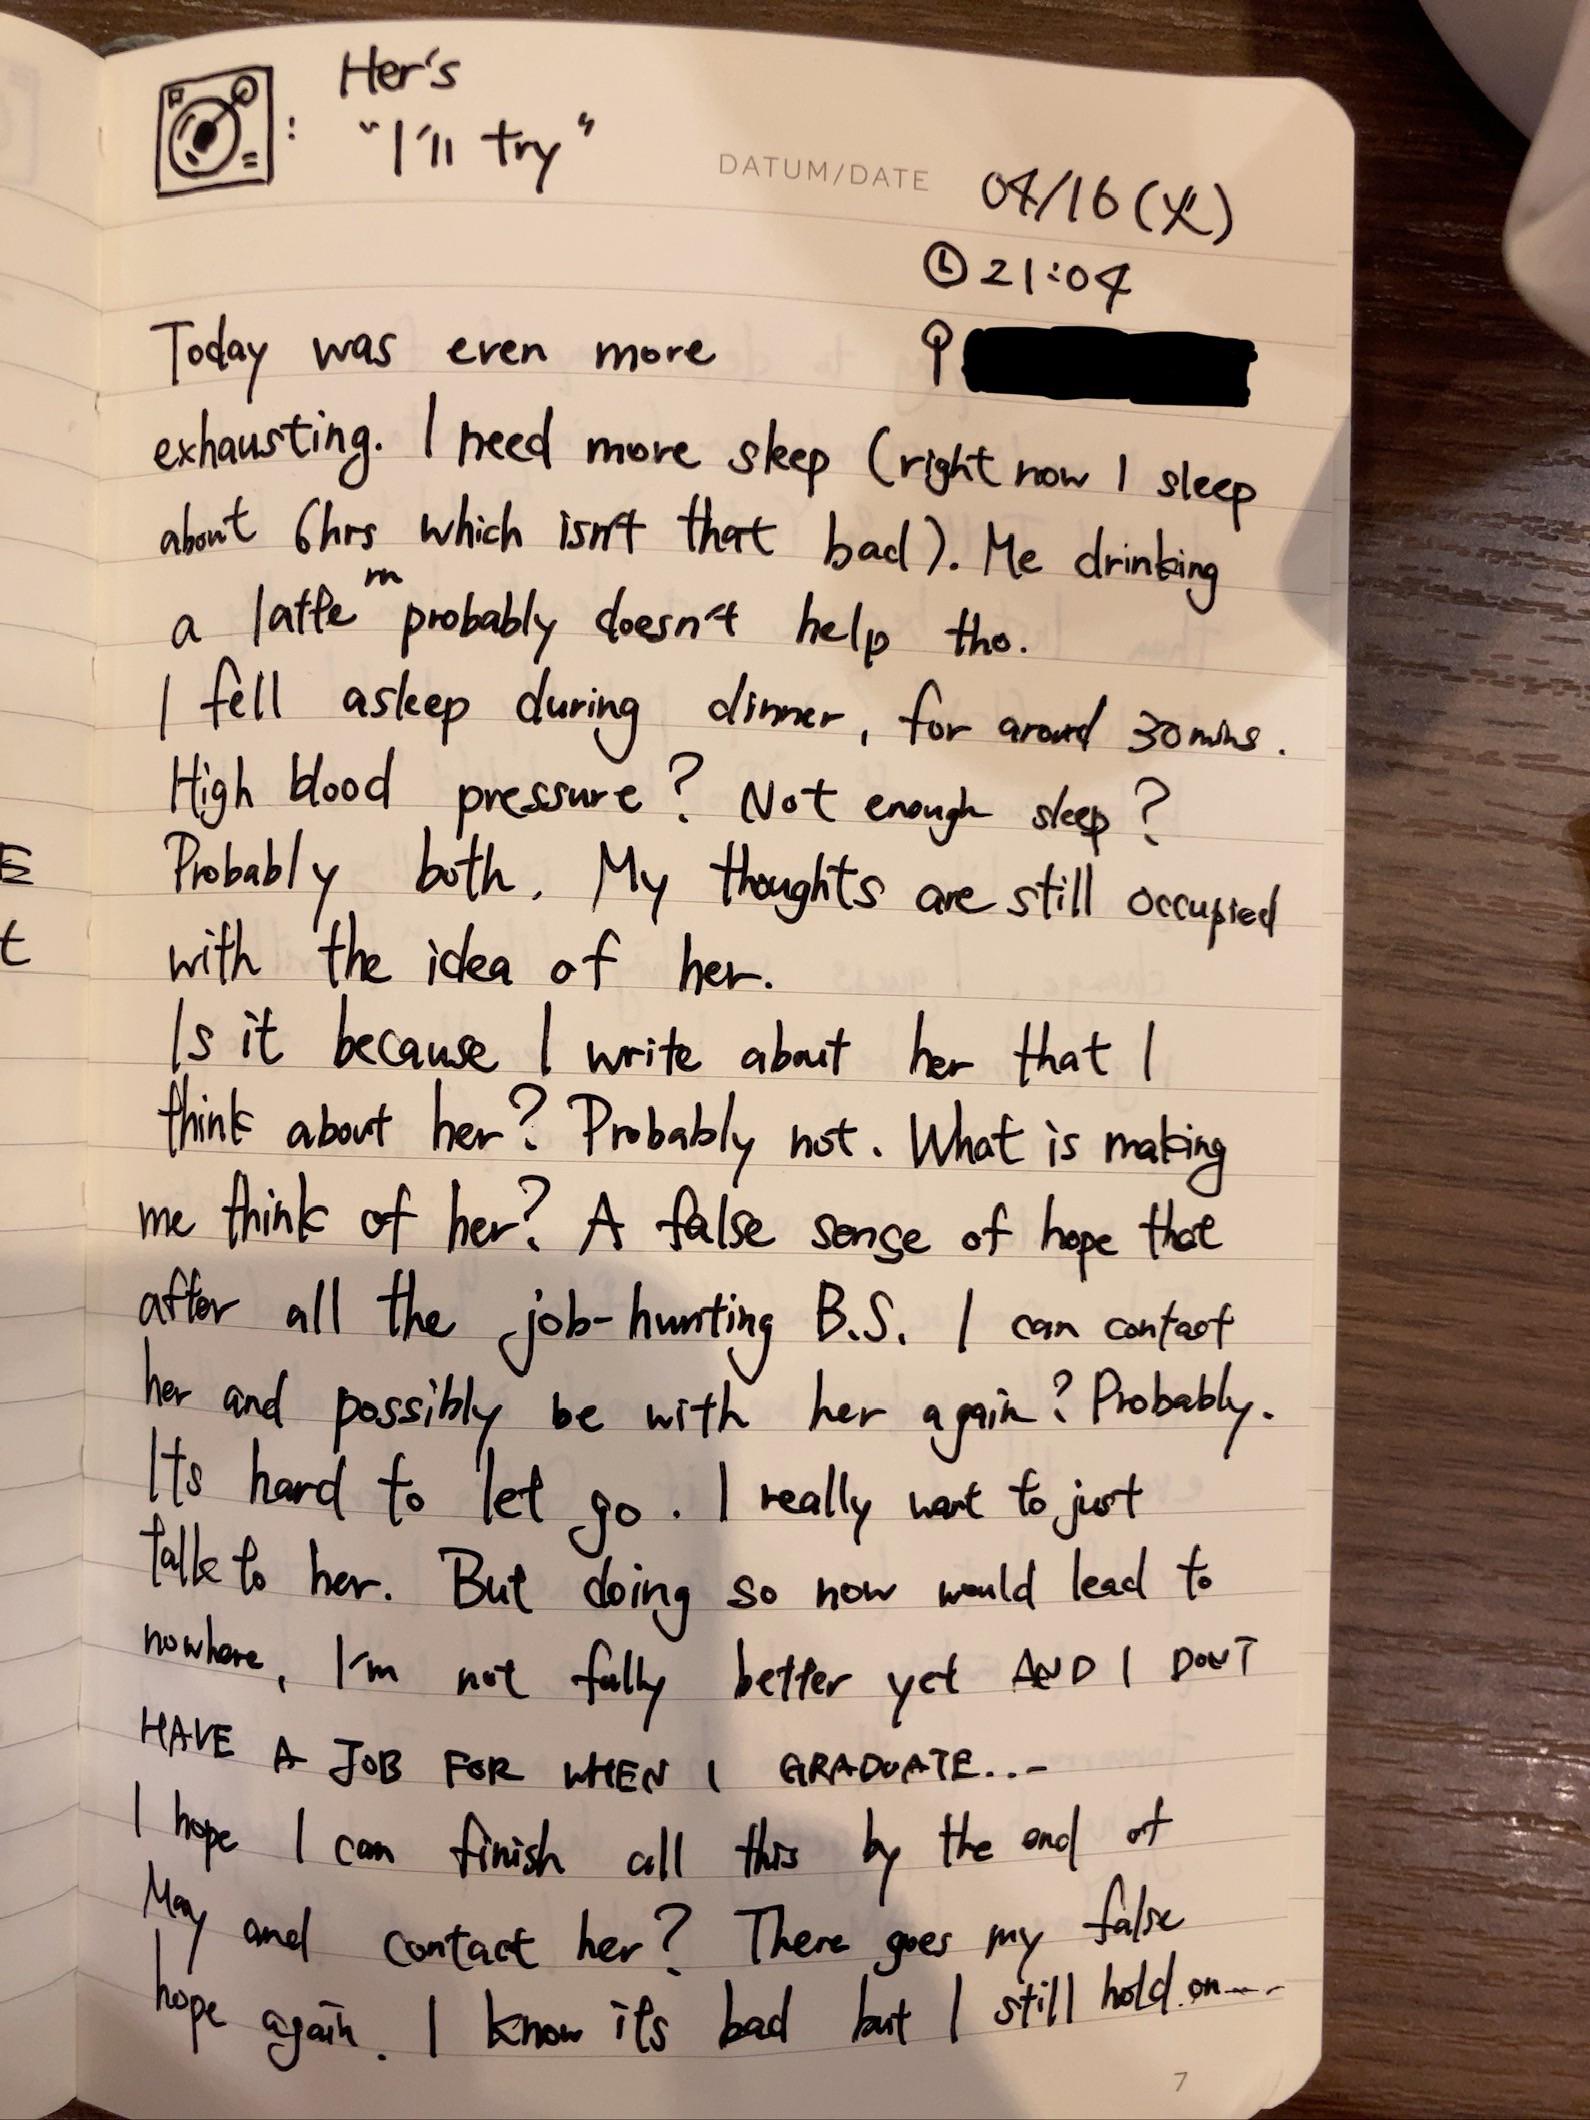 Her's
"I'll try"
DATUM/DATE 04/16 (火)
21:04
Today was even more
exhausting. I need more sleep (right now I sleep
about 6hrs which isn't that bad). Me drinking
a latte rn probably doesn't help tho.
I fell asleep during dinner, for around 30 mins.
High blood pressure? Not enough sleep?
Probably both. My thoughts are still occupied
with the idea of her.
Is it because I write about her that I
think about her? Probably not. What is making
me think of her? A false sense of hope that
after all the job-hunting B.S. I can contact
her and possibly be with her again? Probably.
Its hard to let go. I really want to just
talk to her. But doing so now would lead to
nowhere, I'm not fully better yet AND I DON'T
HAVE A JOB FOR WHEN I GRADUATE...
I hope I can finish all this by the end of
May and contact her? There goes my false
hope again. I know its bad but I still hold on...
7
E
t